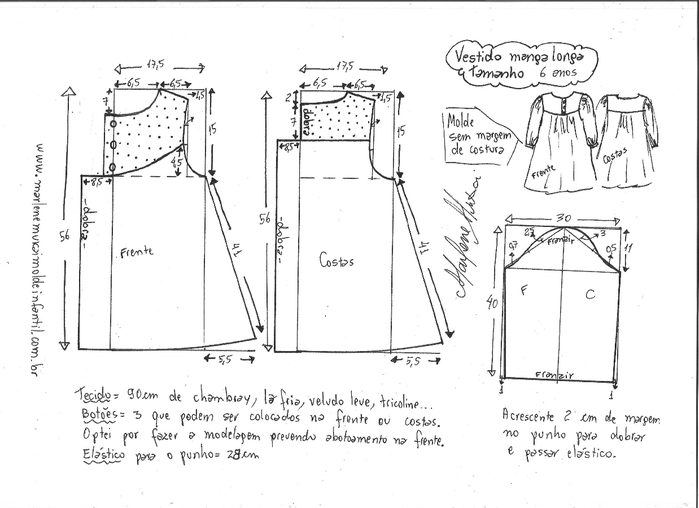 Vestido manga longa
Tamanho 6 anos
Molde
sem margem
de costura
Frente
Costas
17,5
6,5
6,5
7
1,5
15
4,5
8,5
-dobra-
56
Frente
41
5,5
17,5
6,5
6,5
2
7
dobra
1,5
15
8,5
-dobra-
56
Costas
41
5,5
30
Franzir
3
0,5
11
40
F
C
Franzir
1
1
www.marlenemukaimoldeinfantil.com.br
Tecido= 90cm de chambray, lã fria, veludo leve, tricoline...
Botões= 3 que podem ser colocados na frente ou costas.
Optei por fazer a modelagem prevendo abotoamento na frente.
Elástico para o punho= 28cm
Acrescente 2 cm de margem
no punho para dobrar
e passar elástico.